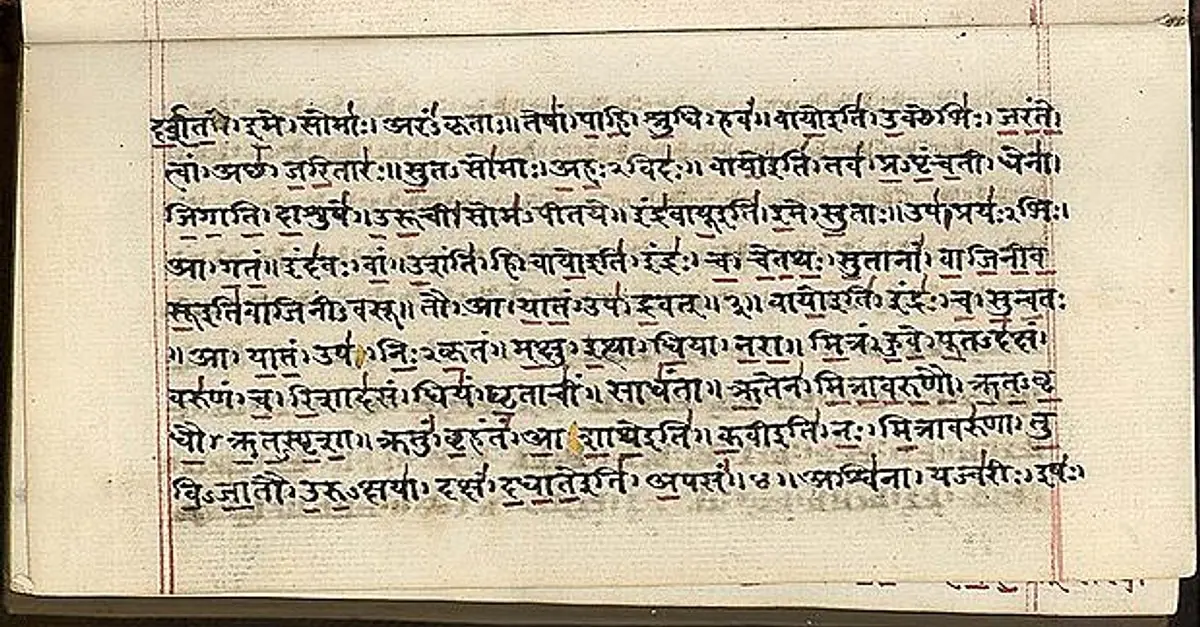 इमे। सोमाः। अरंऽकृताः॥ तेषां। पाहि। श्रुधि। हवं॥ वायोइति। उक्थेभिः। जरंते।
त्वां। अच्छ। जरितारः॥ सुतऽसोमाः। अहःऽविदः॥ वायोइति। तव। प्रऽपृंचती। धेना।
जिगाति। दाशुषे॥ उरूची। सोमऽपीतये॥ इंद्रवायूइति। इमे। सुताः॥ उप। प्रयःऽभिः।
आ। गतं॥ इंदवः। वां। उशंति। हि॥ वायोइति। इंद्रः। च। चेतथः। सुतानां। वाजिनीव
सूइतिवाजिनीऽवसू॥ तौ। आ। यातं। उप। द्रवत्॥ ३॥ वायोइति। इंद्रः। च। सुन्वतः
। आ। यातं। उप। निःऽकृतं॥ मक्षु। इत्था। धिया। नरा॥ मित्रं। हुवे। पूतऽदक्षं।
वरुणं। च। रिशादसं॥ धियं। घृताचीं। साधंता॥ ऋतेन। मित्रावरुणौ। ऋतऽवृ
धौ। ऋतऽस्पृशा॥ क्रतुं। बृहंतं। आशाथेइति॥ कवीइति। नः। मित्रावरुणा। तु
विऽजातौ। उरुऽक्षया॥ दक्षं। दधातेइति। अपसं॥ ४॥ अश्विना। यज्वरीः। इषः।